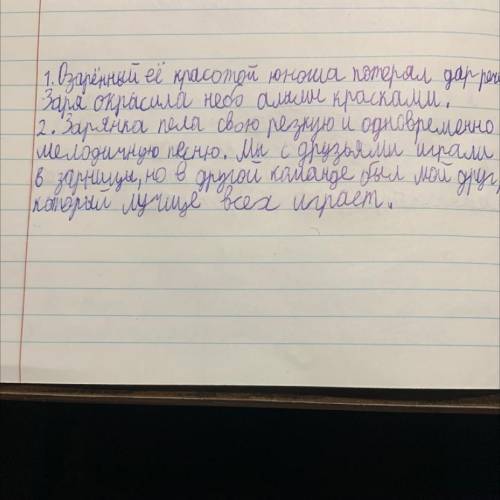 1. Озарённый её красотой юноша потерял дар речи
Заря окрасила небо алыми красками.
2. Зарянка пела свою резкую и одновременно
мелодичную песню. Мы с друзьями играли
в зарницы, но в другой команде был мой друг,
который лучше всех играет.